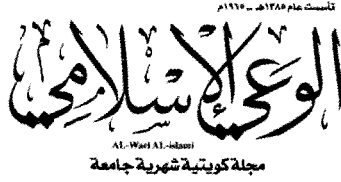 تأسست عام ١٣٨٥هـ - ١٩٦٥م
الوعي الإسلامي
AL-Waei AL-islami
مجلة كويتية شهرية جامعة